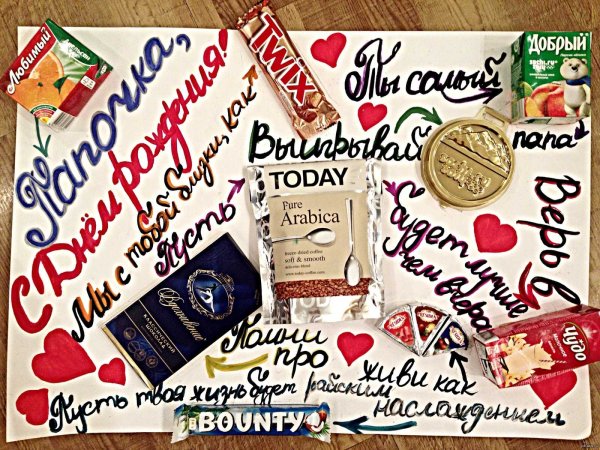 Любимый
Папочка,
С Днём рождения!
Мы с тобой близки, как
TWIX
Ты самый
Добрый
sochi.ru
папа
Выигрывай
Пусть
TODAY
Pure
Arabica
freeze dried coffee
soft & smooth
delicious blend
www.today-coffee.com
TODAY
будет лучше
чем вчера
Верь в
чудо
Вдохновение
Помни
про
живи как
Пусть твоя жизнь будет райским
наслаждением
BOUNTY